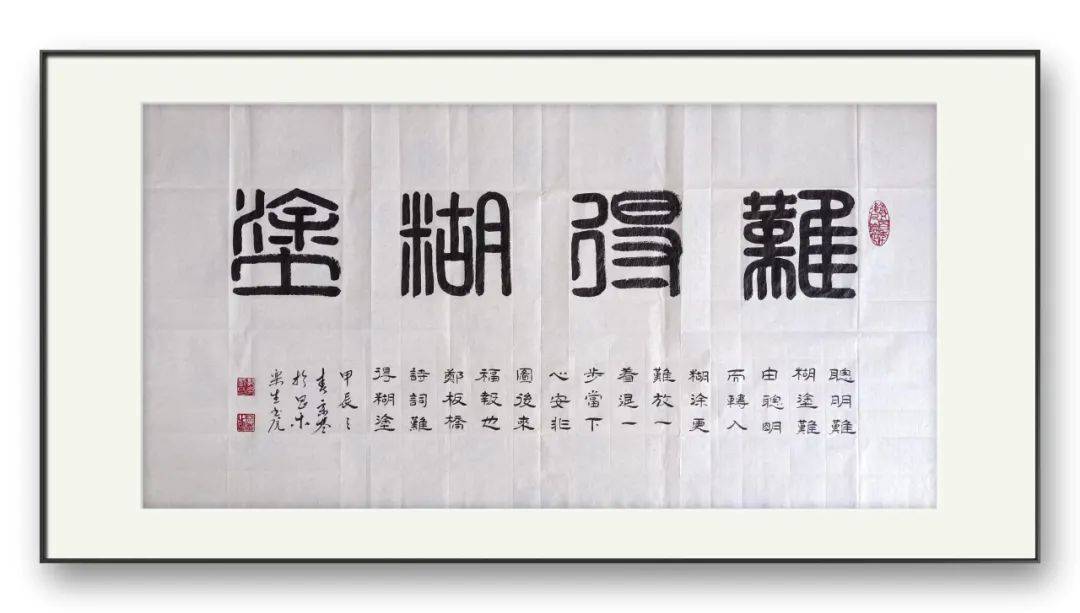 難得糊塗
聰明難
糊塗難
由聰明
而轉入
糊涂更
難放一
着退一
步當下
心安非
圖後來
福報也
鄭板橋
詩詞難
得糊塗
甲辰之
春
於
樂生